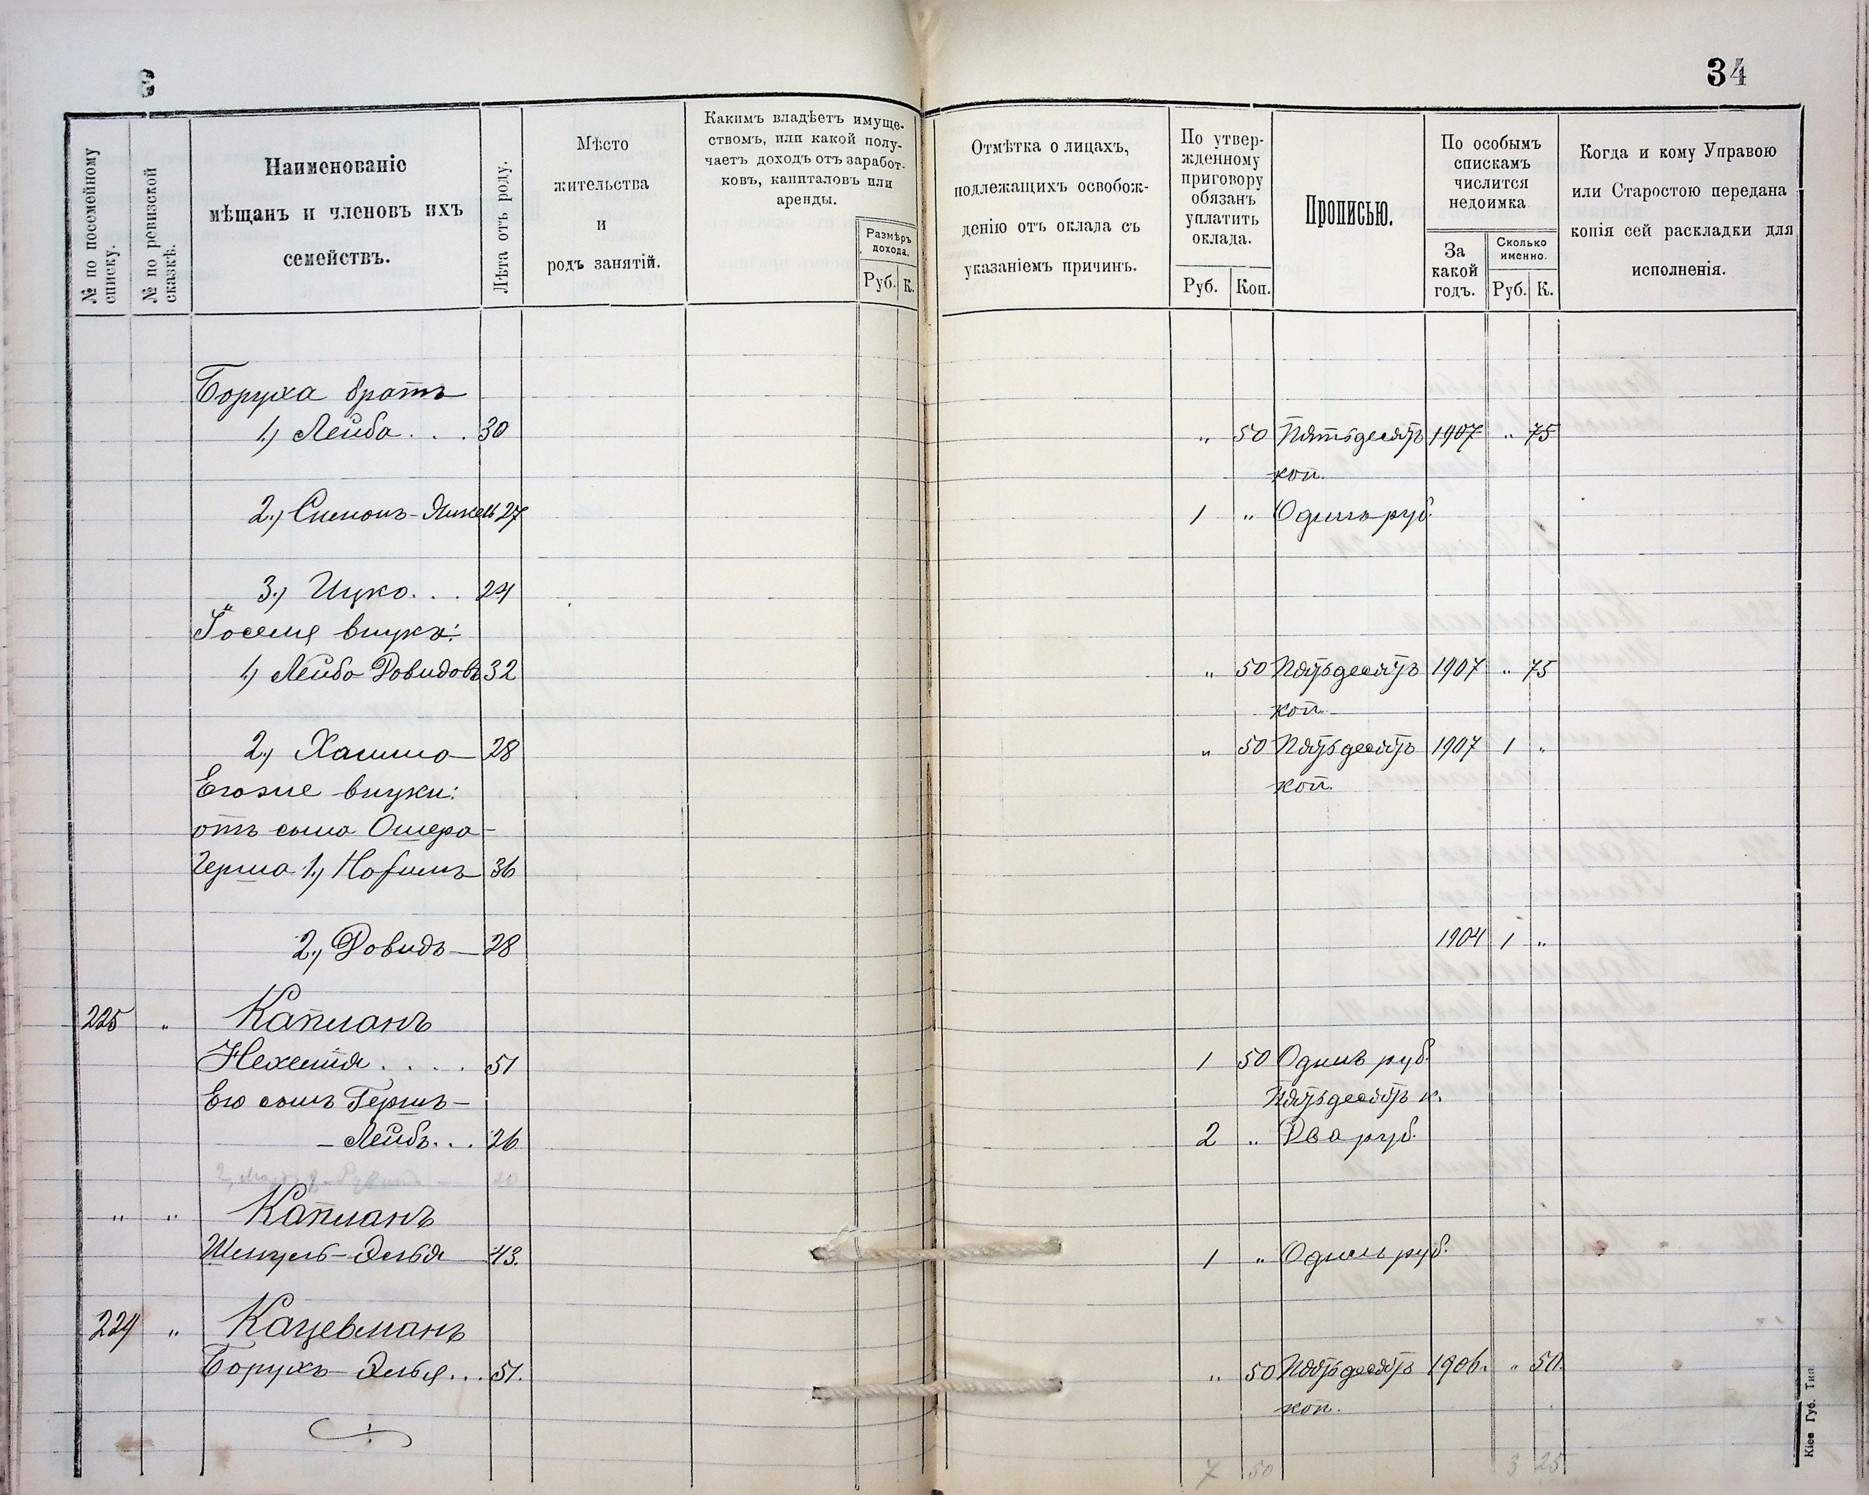 34
№ по посемейному списку.
№ по ревизской сказкѣ.
Наименованіе
мѣщанъ и членовъ ихъ
семействъ.
Лѣта отъ роду.
Мѣсто
жительства
и
родъ занятій.
Какимъ владѣетъ имуще-
ствомъ, или какой полу-
чаетъ доходъ отъ заработ-
ковъ, капиталовъ или
аренды.
Размѣръ
дохода.
Руб. К.
Отмѣтка о лицахъ,
подлежащихъ освобож-
денію отъ оклада съ
указаніемъ причинъ.
По утвер-
жденному
приговору
обязанъ
уплатить
оклада.
Руб. Коп.
Прописью.
По особымъ
спискамъ
числится
недоимка
За
какой
годъ.
Сколько
именно.
Руб. К.
Когда и кому Управою
или Старостою передана
копія сей раскладки для
исполненія.
Боруха братъ
1.) Лейба . . . 30 " 50 Пятьдесятъ 1907 " 75
коп.
2.) Симонъ- 27 1 " Одинъ руб.
3.) Ицко . . . 24
Іоселя внуки:
1.) Лейба Довидовъ 32 " 50 Пятьдесятъ 1907 " 75
коп.
2.) Хаимъ 28 " 50 Пятьдесятъ 1907 1 "
Его же внуки: коп.
отъ сына Ошера-
Герша 1.) 36
2.) Довидъ — 28 1904 1 "
225 " Капланъ
Нехемія . . . . 51 1 50 Одинъ руб.
Его сынъ Гершъ- Пятьдесятъ к.
- Лейбъ . . . 26 2 " Два руб.
" " Капланъ
Шмуль-Элья 43. 1 " Одинъ руб.
224 " Кацевманъ
Борухъ-Элья . . . 51. " 50 Пятьдесятъ 1906. " 50.
коп.
7 50 3 25
Кіев Губ. Тип